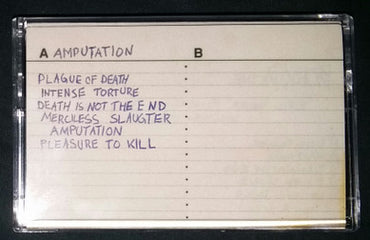 A AMPUTATION B
PLAGUE OF DEATH
INTENSE TORTURE
DEATH IS NOT THE END
MERCILESS SLAUGTER
AMPUTATION
PLEASURE TO KILL